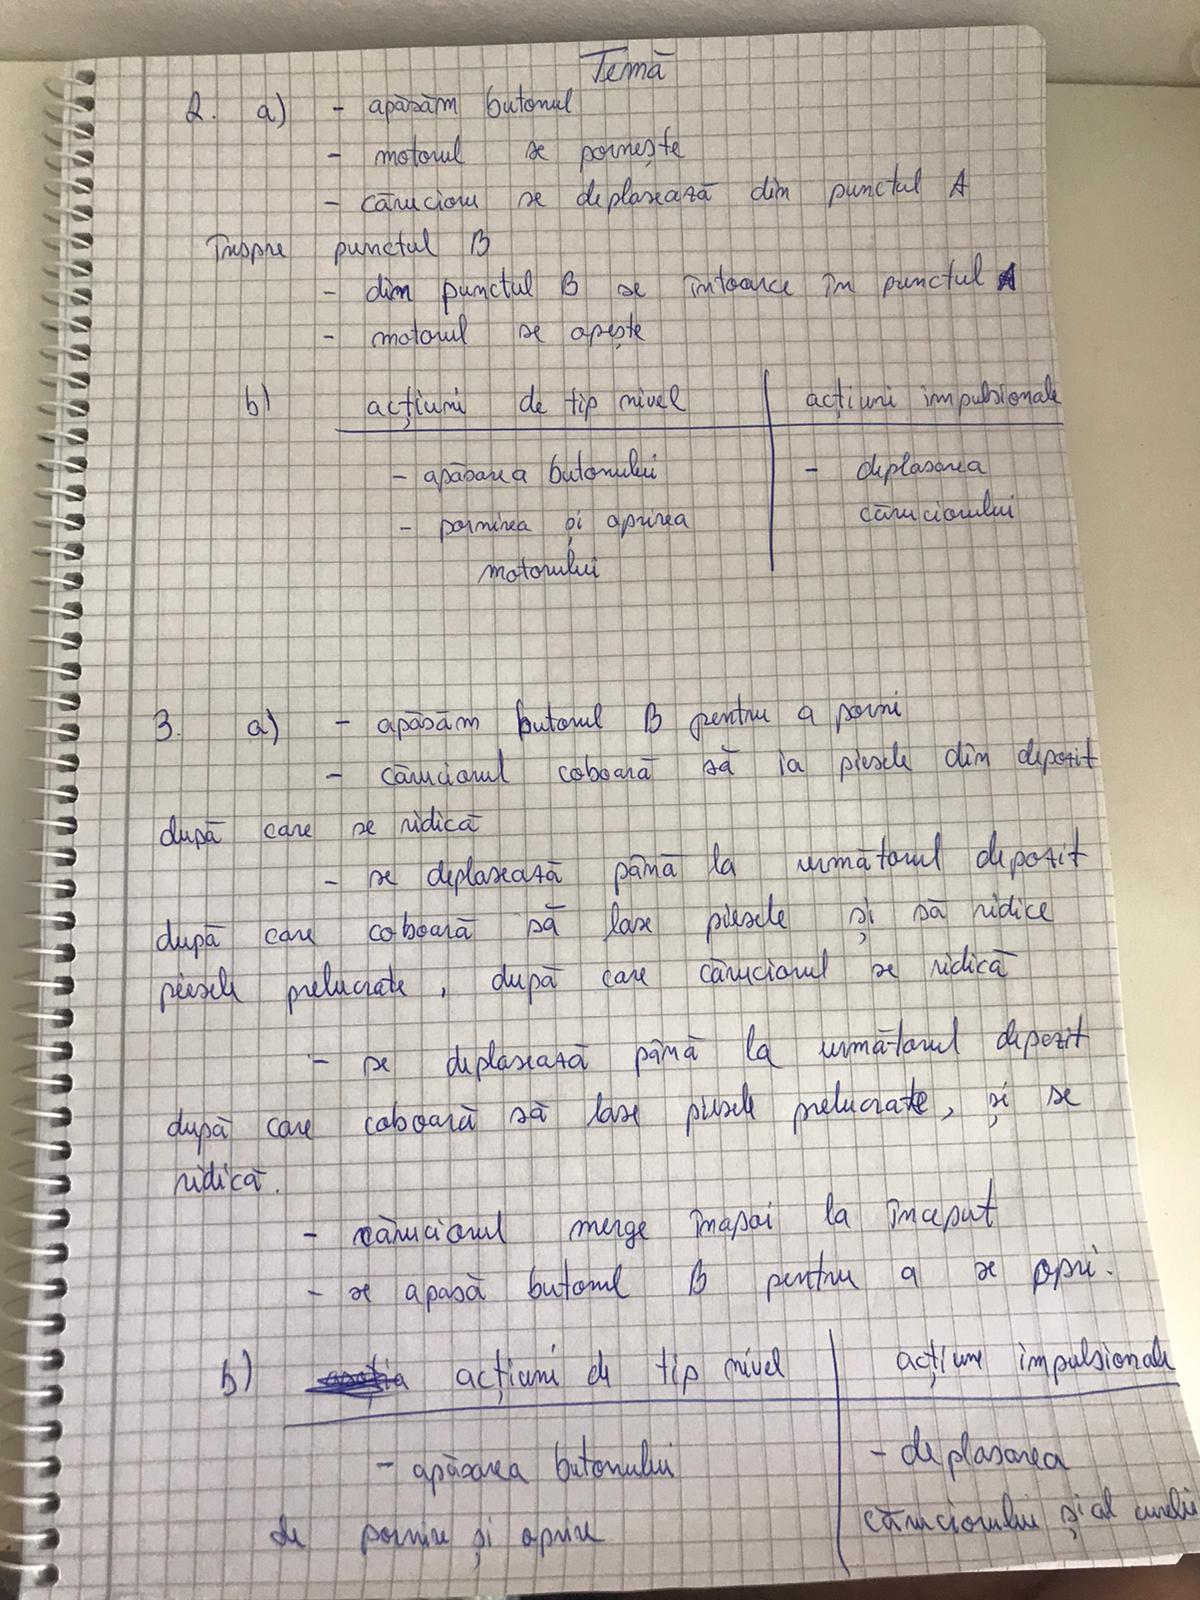 Temă
2. a) - apăsăm butonul
- motorul se pornește
- cărucioru se deplasează din punctul A
înspre punctul B
- din punctul B se întoarce în punctul A
- motorul se opește
b) acțiuni de tip nivel | acțiuni impulsionale
- apăsarea butonului - deplasarea
- pornirea și oprirea căruciorului
motorului
3. a) - apăsăm butonul B pentru a porni
- căruciorul coboară să ia piesele din depozit
după care se ridică
- se deplasează până la următorul depozit
după care coboară să lase piesele și să ridice
piesele prelucrate, după care căruciorul se ridică
- se deplasează până la următorul depozit
după care coboară să lase piesele prelucrate, și se
ridică.
- căruciorul merge înapoi la început
- se apasă butonul B pentru a se opri.
b) acțiuni de tip nivel | acțiuni impulsionale
- apăsarea butonului - deplasarea
de pornire și oprire căruciorului și al